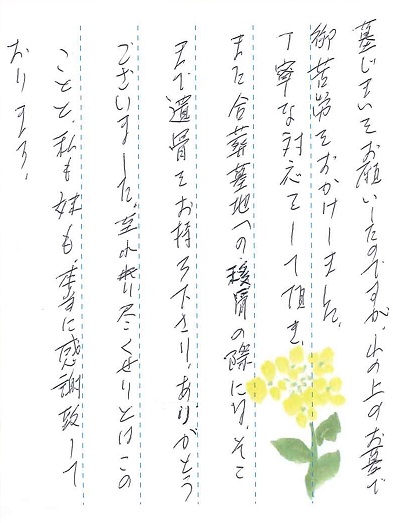 墓じまいをお願いしたのですが、山の上のお墓で
御苦労をおかけしました。
丁寧な対応をして頂き、
また合葬墓地への移骨の際には、そこ
まで遺骨をお持ち下さり、ありがとう
ございました。至れり尽くせりとはこの
ことと、私も妹も、本当に感謝致して
おります。